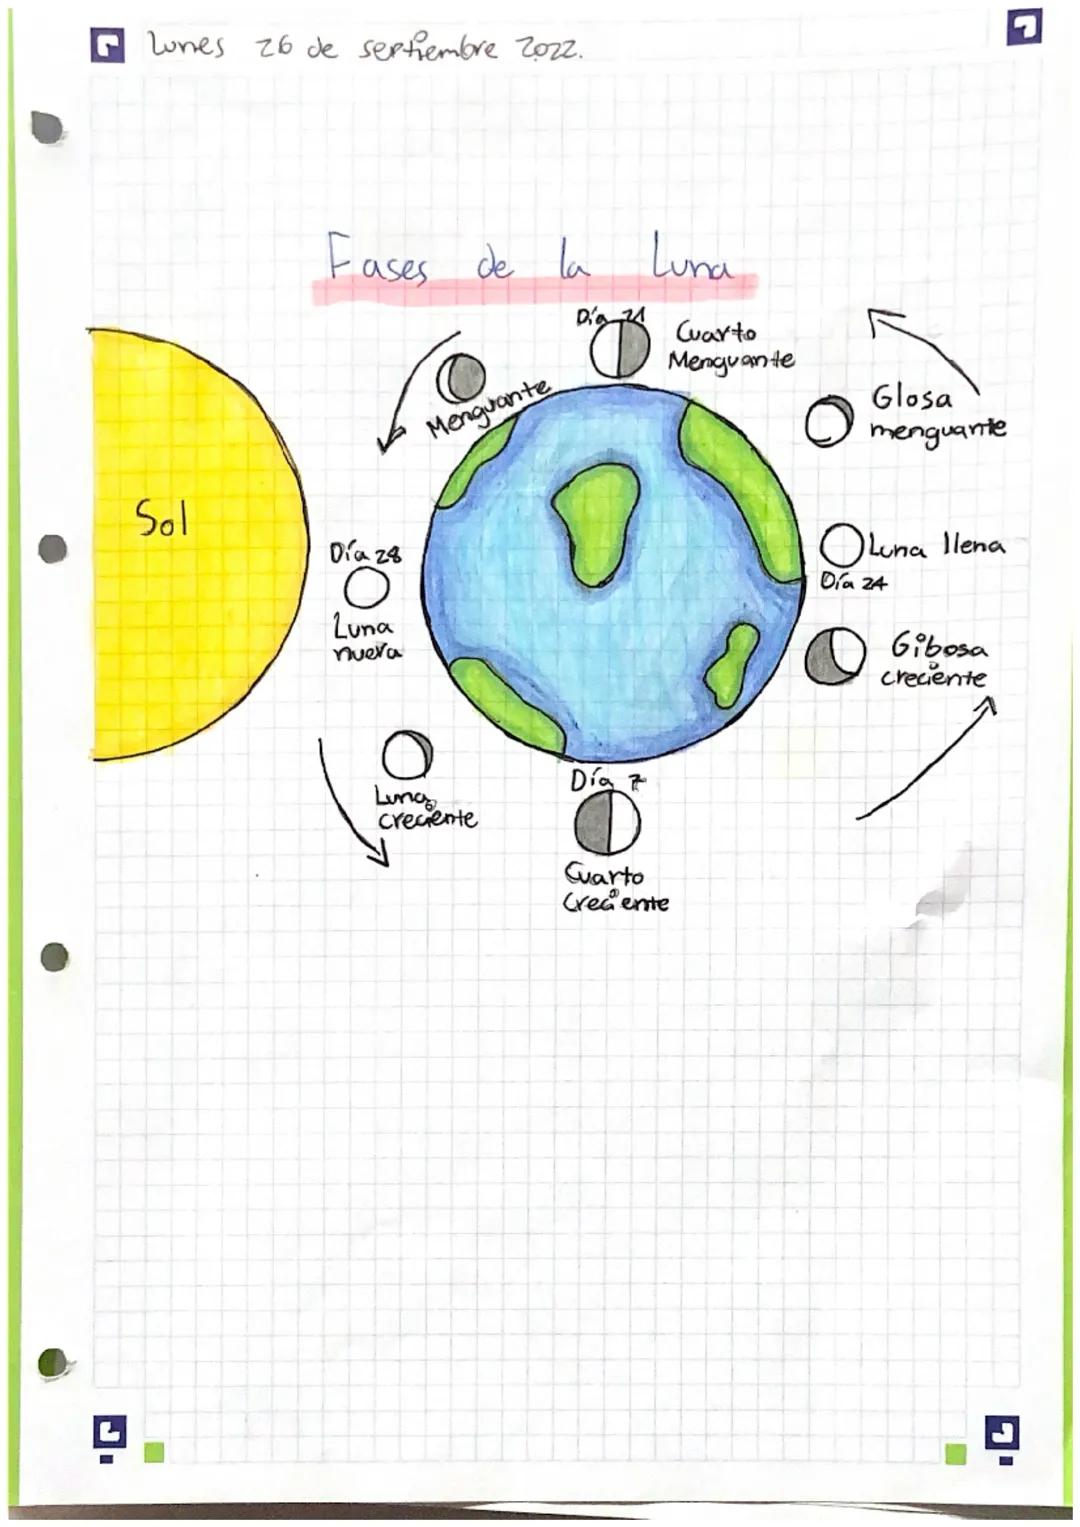 Lunes 26 de septiembre 2022.
Fases de la Luna
Día 21
Cuarto
Menguante
Menguante
Glosa
menguante
Sol
Día 28
Luna
nueva
Luna llena
Día 24
Gibosa
creciente
Luna
creciente
Día 7
Cuarto
Creciente